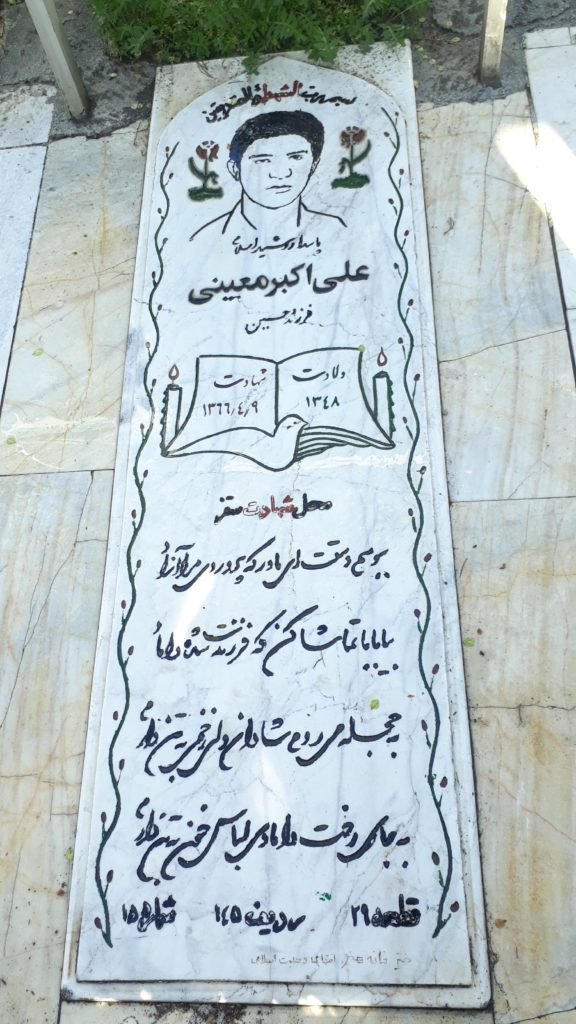 بسم رب الشهداء والصدیقین
پاسدار رشید اسلام
علی اکبر معینی
فرزند حسین
ولادت
۱۳۴۸
شهادت
۱۳۶۶/۴/۹
محل شهادت سقز
ببوسم دستت ای مادر که پروردی مرا آزاد
بیا بابا تماشا کن که فرزندت شده داماد
به حجله می روم شادان ولی زخمی به تن دارم
به جای رخت دامادی لباس خون به تن دارم
قطعه ۲۹ ردیف ۱۴۵ شماره ۱۵